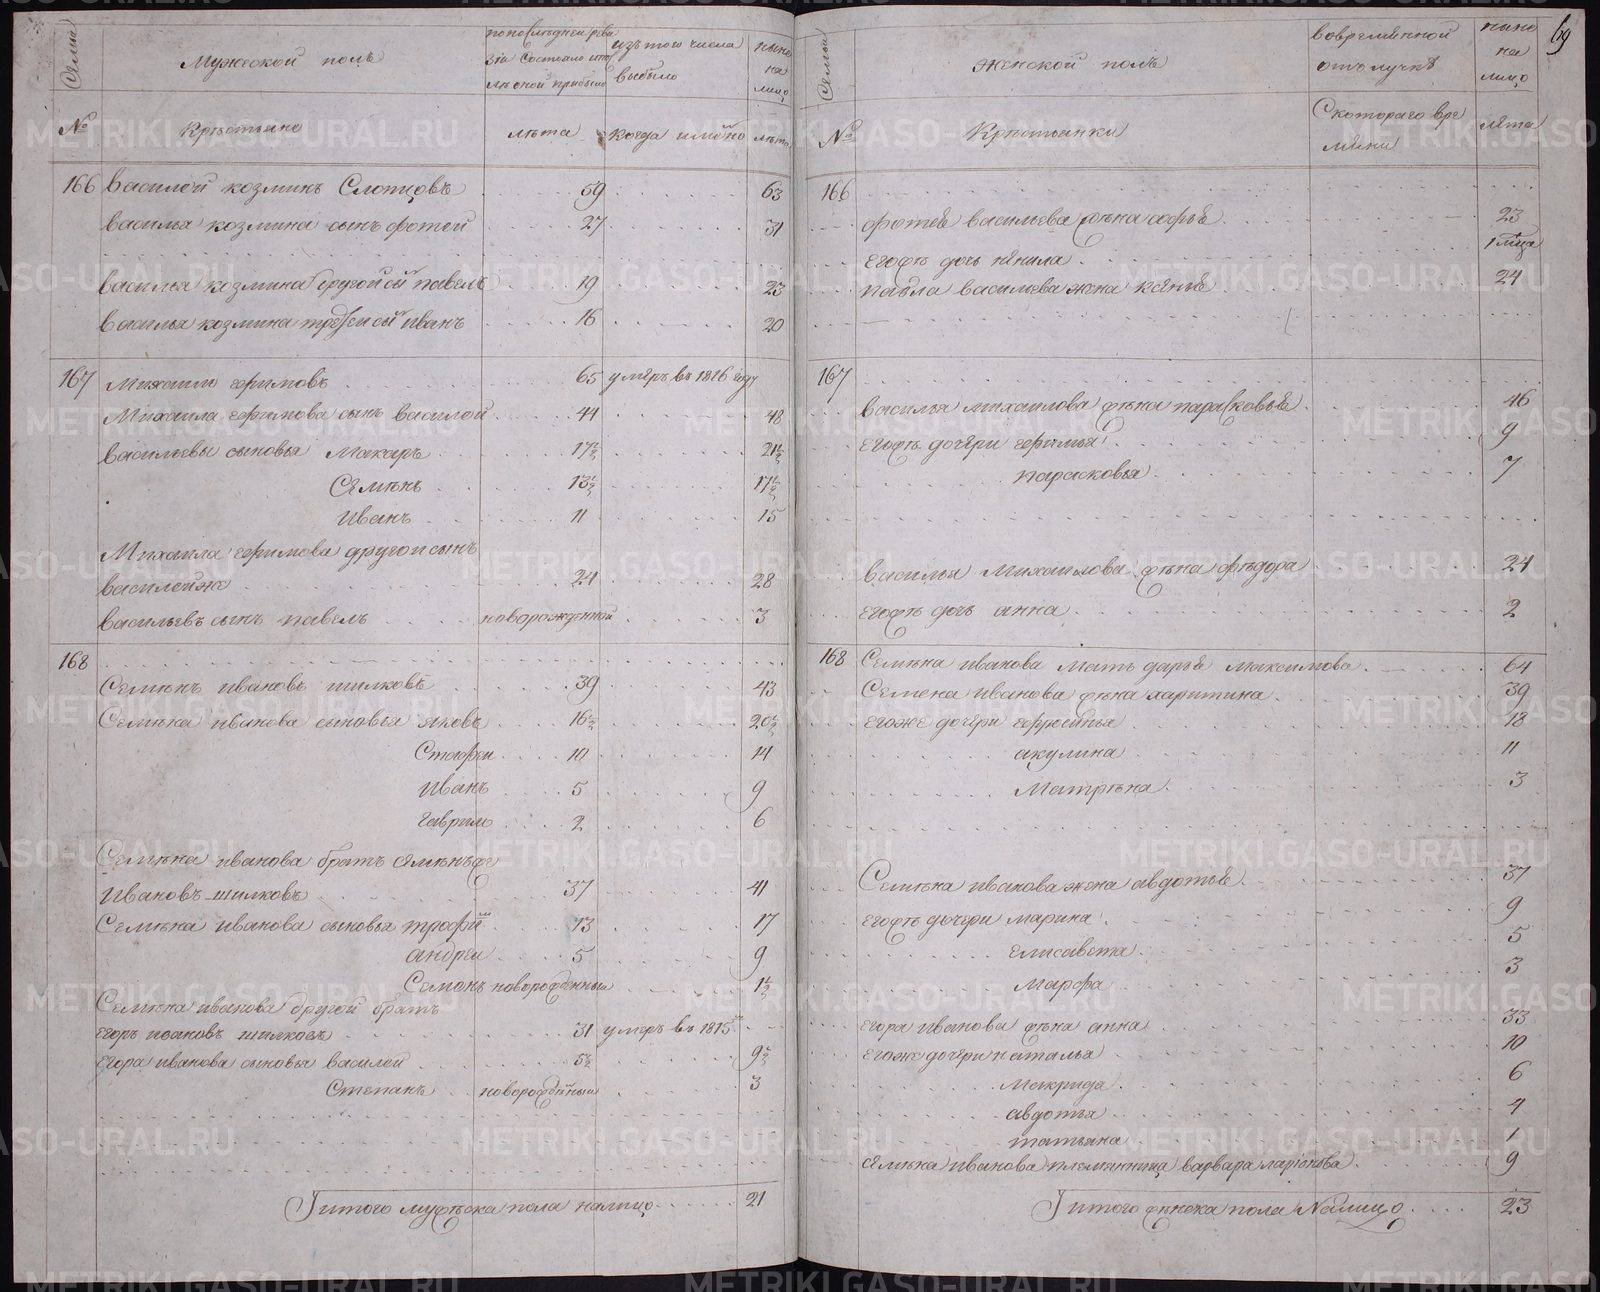 Семьи
Мужеской полъ
по последней реви
зіи состояло и по
слѣ оной прибыло
изъ того числа
выбыло
ныне
на
лицо
№
Крѣстьяне
лѣта
когда имѣно
лѣта
166 Василей козминъ Слопцовъ 59 63
василья козмина сынъ фотей 27 31
василья козмина другой сынъ павелъ 19 23
василья козмина третей сынъ иванъ 16 20
167 Михаило ефимовъ 65 умеръ въ 1816 году
Михаила ефимова сынъ василей 44 48
васильевы сыновья Макаръ 17½ 21½
Семенъ 13½ 17½
Иванъ 11 15
Михаила ефимова другои сынъ
василейже 24 28
васильевъ сынъ павелъ новорожденной 3
168
Семенъ ивановъ шилковъ 39 43
Семѣна иванова сыновья яковъ 16½ 20½
Стафеи 10 14
Иванъ 5 9
Гаврило 2 6
Семѣна иванова братъ семенъже
Ивановъ шилковъ 37 41
Семѣна иванова сыновья трофим 13 17
андреи 5 9
Семонъ новорожденныи 1½
Семѣна иванова другой братъ
егоръ ивановъ шилковъ 31 умеръ въ 1815
егора иванова сыновья василеи 5½ 9½
Степанъ новорожденныи 3
итого мужеска пола налицо 21
69
Семьи
Женской полъ
вовременной
отълучкѣ
ныне
на
лицо
№
Крѣстьянки
Скотораго вре
мени
лѣта
166
фотея васильева жена софья 23
егожъ дочь ненила 1 м͠ца
павла василева жена ксенья 24
167
василья михаилова жена парасковья 46
егожъ дочери ефимья 9
парасковья 7
василья Михаилова жена федора 24
егожъ дочь анна 2
168 Семѣна иванова мать дарья максимова 64
Семена иванова жена харитина 39
егоже дочери ефросинья 18
акулина 11
Матрѣна 3
Семѣна иванова жена авдотья 37
егожъ дочери марина 9
елисавета 5
марфа 3
егора иванова жена анна 33
егоже дочери наталья 10
Макрида 6
авдотья 4
татьяна 1
семѣна иванова племянница варвара ларионова 9
итого женска пола Налицо 23
METRIKI.GASO-URAL.RU